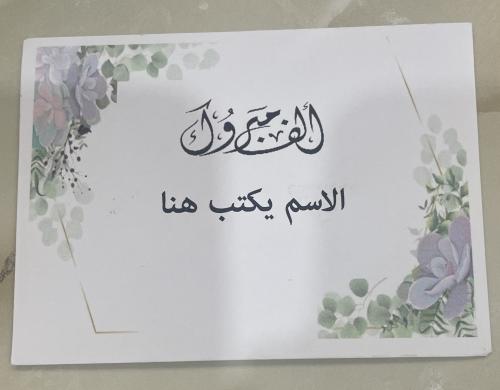 ألف مبروك
الاسم يكتب هنا